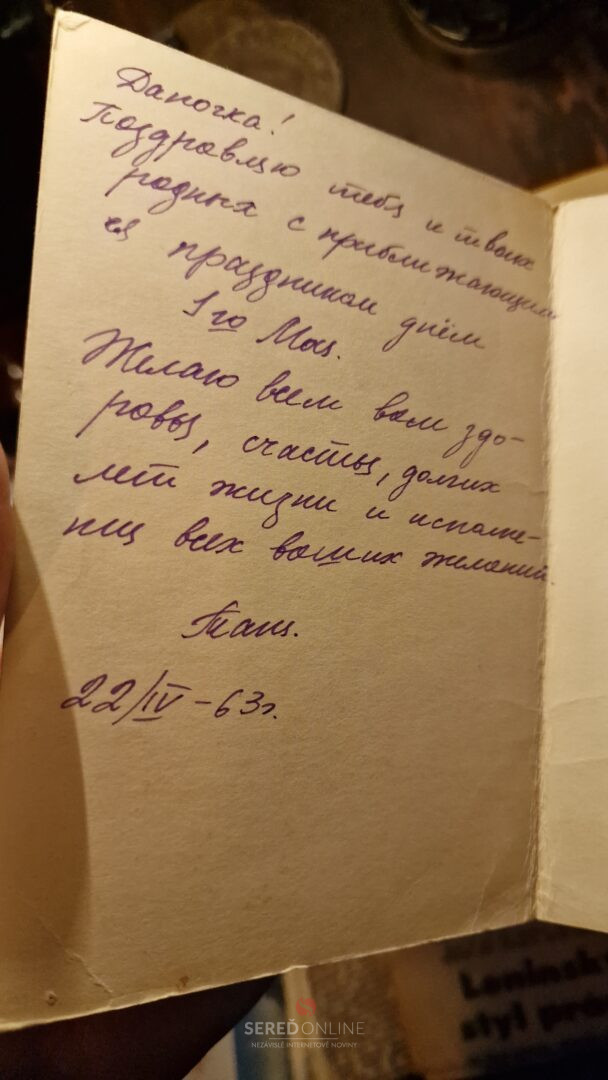 Даночка!
Поздравляю тебя и твоих
родных с приближающим
ся праздником днём
1го Мая.
Желаю всем вам здо-
ровья, счастья, долгих
лет жизни и исполне-
ния всех ваших желаний.
Таня.
22/IV-63г.
Leninsk
styl prá
SEREĎONLINE
NEZÁVISLÉ INTERNETOVÉ NOVINY